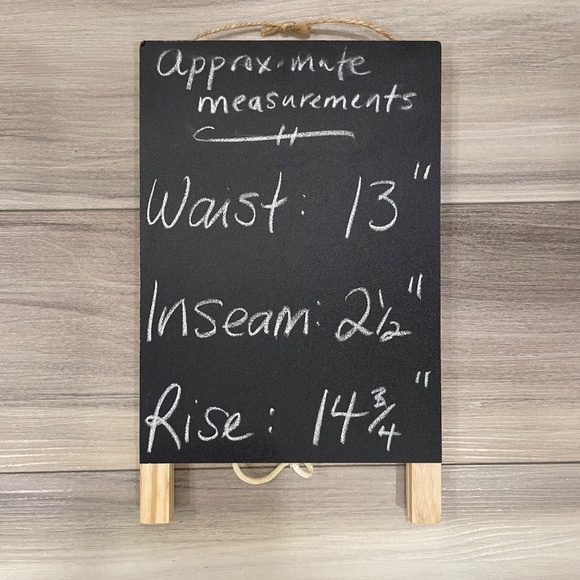 Approximate
measurements
Waist: 13"
Inseam: 2½"
Rise: 14¾"